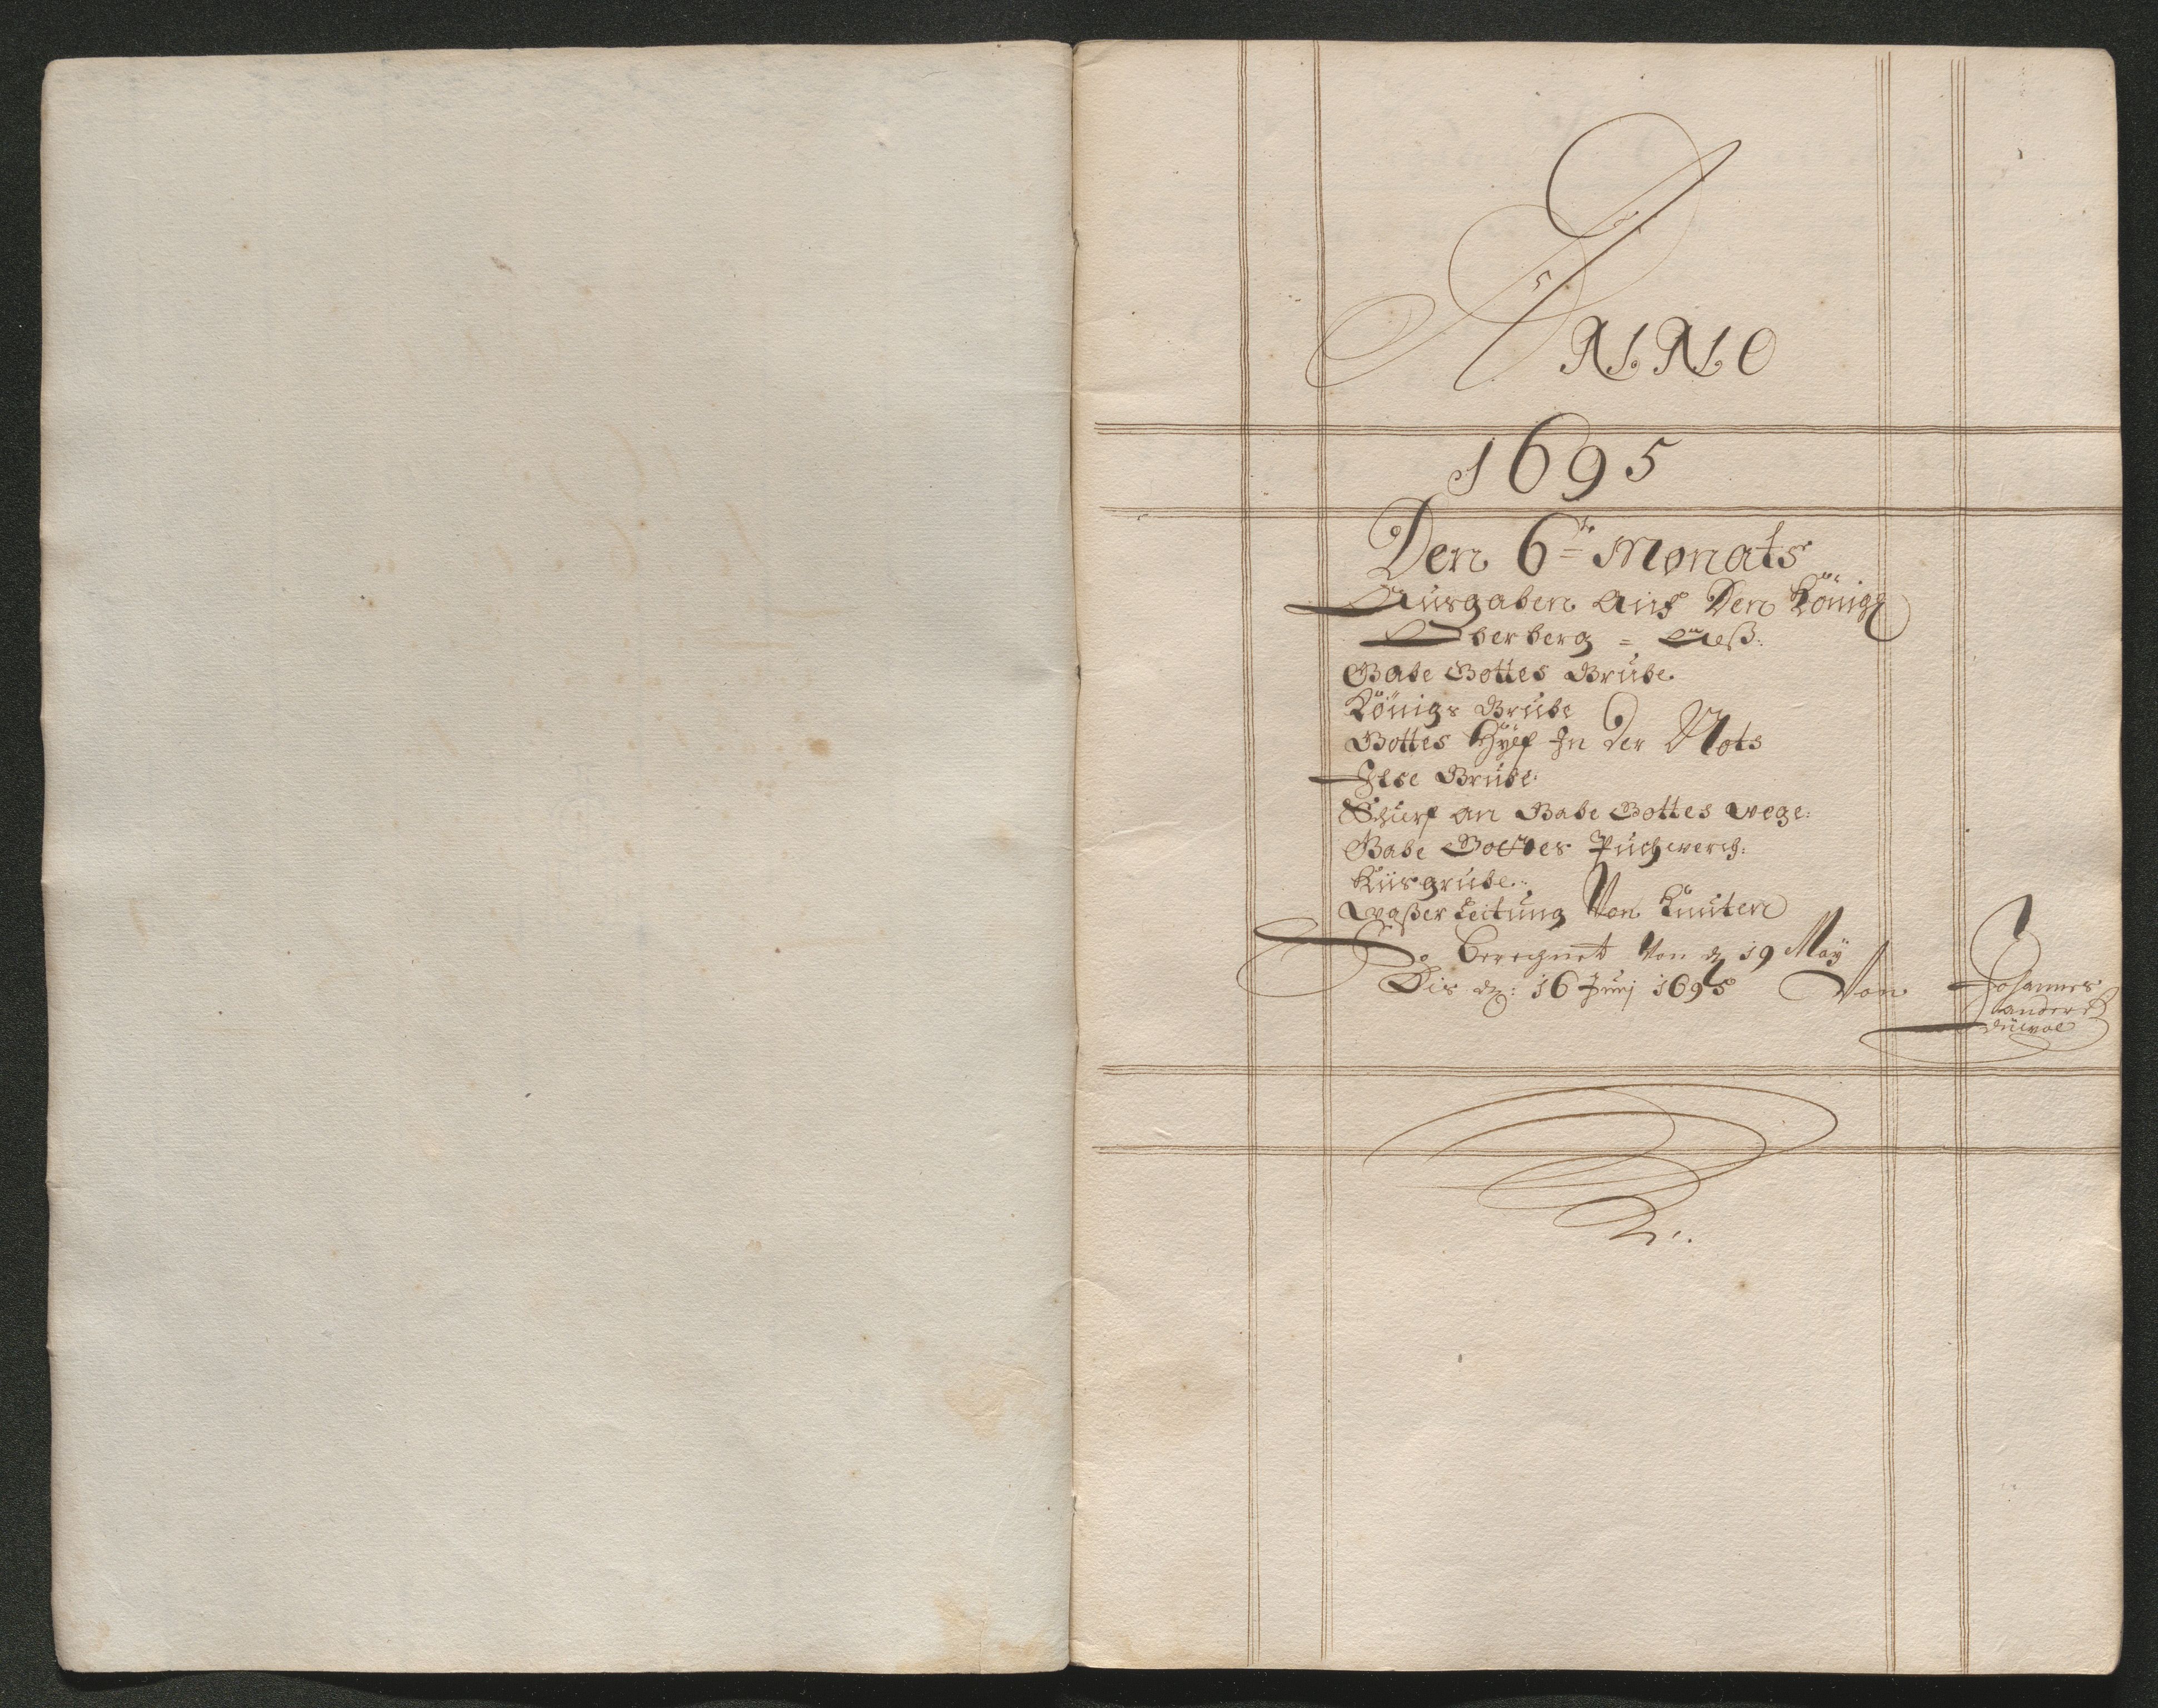 ANNO
1695
Den 6te Monats
Ausgaben auf Den Königl
Oberberg =
Gabe Gottes Grube
Königs Grube
Gottes Hülf In der Nots
Grube:
Schurf an Gabe Gottes wege:
Gabe Gottes Puchwerch:
Kiisgrube:
Waßer Leitung Von
So berechnet Von d 19 May
Bis d: 16 Junj 1695 Von Johannes